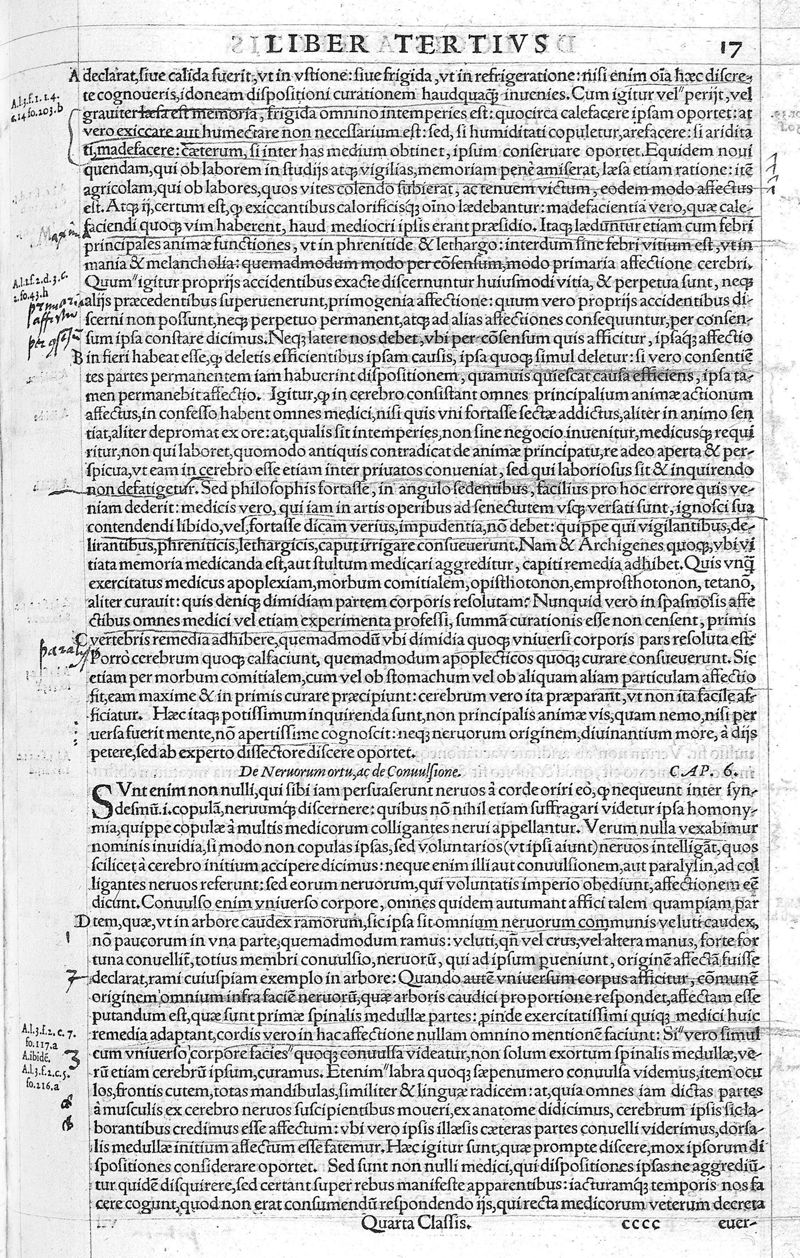 LIBER TERTIVS
17
A declarat, siue calida fuerit, vt in vstione: siue frigida, vt in refrigeratione: nisi enim oīa hæc discre-
te cognoueris, idoneam dispositioni curationem haudquaq; inuenies. Cum igitur vel" perijt, vel
grauiter læsa est memoria, frigida omnino intemperies est: quocirca calefacere ipsam oportet: at
vero exiccare aut humectare non necessarium est: sed, si humiditati copuletur, arefacere: si aridita
ti, madefacere: cæterum, si inter has medium obtinet, ipsum conseruare oportet. Equidem noui
quendam, qui ob laborem in studijs atq; vigilias, memoriam penè amiserat, læsa etiam ratione: itē
agricolam, qui ob labores, quos vites colendo subierat, ac tenuem victum, eodem modo affectus
est. Atq; ij, certum est, ꝙ exiccantibus calorificisq; oīno lædebantur: madefacientia vero, quæ cale-
faciendi quoq; vim haberent, haud mediocri ipsis erant præsidio. Itaq; læduntur etiam cum febri
principales animæ functiones, vt in phrenitide & lethargo: interdum sine febri vitium est, vt in
mania & melancholia: quemadmodum modo per cōsensum, modo primaria affectione cerebri.
Quum" igitur proprijs accidentibus exacte discernuntur huiusmodi vitia, & perpetua sunt, neq;
alijs præcedentibus superuenerunt, primogenia affectione: quum vero proprijs accidentibus di-
scerni non possunt, neq; perpetuo permanent, atq; ad alias affectiones consequuntur, per consen-
sum ipsa constare dicimus. Neq; latere nos debet, vbi per cōsensum quis afficitur, ipsaq; affectio
B in fieri habeat esse, ꝙ deletis efficientibus ipsam causis, ipsa quoq; simul deletur: si vero consentiē
tes partes permanentem iam habuerint dispositionem, quamuis quiescat causa efficiens, ipsa ta-
men permanebit affectio. Igitur, ꝙ in cerebro consistant omnes principalium animæ actionum
affectus, in confesso habent omnes medici, nisi quis vni fortasse sectæ addictus, aliter in animo sen
tiat, aliter depromat ex ore: at, qualis sit intemperies, non sine negocio inuenitur, medicusq; requi
ritur, non qui laboret, quomodo antiquis contradicat de animæ principatu, re adeo aperta & per-
spicua, vt eam in cerebro esse etiam inter priuatos conueniat, sed qui laboriosus sit & inquirendo
non defatigetur. Sed philosophis fortasse, in angulo sedentibus, facilius pro hoc errore quis ve-
niam dederit: medicis vero, qui iam in artis operibus ad senectutem vsq; versati sunt, ignosci sua
contendendi libido, vel, fortasse dicam verius, impudentia, nō debet: quippe qui vigilantibus, de-
lirantibus, phreniticis, lethargicis, caput irrigare consueuerunt. Nam & Archigenes quoq;, vbi vi
tiata memoria medicanda est, aut stultum medicari aggreditur, capiti remedia adhibet. Quis vnq̄
exercitatus medicus apoplexiam, morbum comitialem, opisthotonon, emprosthotonon, tetanō,
aliter curauit: quis deniq; dimidiam partem corporis resolutam? Nunquid vero in spasmosis affe
ctibus omnes medici vel etiam experimenta professi, summā curationis esse non censent, primis
C vertebris remedia adhibere, quemadmodū vbi dimidia quoq; vniuersi corporis pars resoluta est?
Porro cerebrum quoq; calfaciunt, quemadmodum apoplecticos quoq; curare consueuerunt. Sic
etiam per morbum comitialem, cum vel ob stomachum vel ob aliquam aliam particulam affectio
fit, eam maxime & in primis curare præcipiunt: cerebrum vero ita præparant, vt non ita facile af-
ficiatur. Hæc itaq; potissimum inquirenda sunt, non principalis animæ vis, quam nemo, nisi per
uersa fuerit mente, nō apertissime cognoscit: neq; neruorum originem, diuinantium more, à dijs
petere, sed ab experto dissectore discere oportet.
De Neruorum ortu, ac de Conuulsione. CAP. 6.
SVnt enim non nulli, qui sibi iam persuaserunt neruos à corde oriri eō, ꝙ nequeunt inter syn-
desmū .i. copulā, neruumq; discernere: quibus nō nihil etiam suffragari videtur ipsa homony-
mia, quippe copulæ à multis medicorum colligantes nerui appellantur. Verum nulla vexabimur
nominis inuidia, si modo non copulas ipsas, sed voluntarios (vt ipsi aiunt) neruos intelligāt, quos
scilicet à cerebro initium accipere dicimus: neque enim illi aut conuulsionem, aut paralysin, ad col
ligantes neruos referunt: sed eorum neruorum, qui voluntatis imperio obediunt, affectionem eē
dicūt. Conuulso enim vniuerso corpore, omnes quidem autumant affici talem quampiam par
D tem, quæ, vt in arbore caudex ramorum, sic ipsa sit omnium neruorum communis veluti caudex,
nō paucorum in vna parte, quemadmodum ramus: veluti, qn̄ vel crus, vel altera manus, forte for
tuna conuellit̄, totius membri conuulsio, neruorū, qui ad ipsum ꝑueniunt, originē affectā fuisse
declarat, rami cuiuspiam exemplo in arbore: Quando autē vniuersum corpus afficitur, cōmunē
originem omnium infra faciē neruorū, quæ arboris caudici proportione respondet, affectam esse
putandum est, quæ sunt primæ spinalis medullæ partes: ꝓinde exercitatissimi quiq; medici huic
remedia adaptant, cordis vero in hac affectione nullam omnino mentionē faciunt: Si" vero simul
cum vniuerso corpore facies" quoq; conuulsa videatur, non solum exortum spinalis medullæ, ve-
rū etiam cerebrū ipsum, curamus. Etenim" labra quoq; sæpenumero conuulsa videmus, item ocu
los, frontis cutem, totas mandibulas, similiter & linguæ radicem: at, quia omnes iam dictas partes
à musculis ex cerebro neruos suscipientibus moueri, ex anatome didicimus, cerebrum ipsis sic la-
borantibus credimus esse affectum: vbi vero ipsis illæsis cæteras partes conuelli viderimus, dorsa-
lis medullæ initium affectum esse fatemur. Hæc igitur sunt, quæ prompte discere, mox ipsorum di
spositiones considerare oportet. Sed sunt non nulli medici, qui dispositiones ipsas ne aggrediū-
tur quidē disquirere, sed certant super rebus manifeste apparentibus: iacturamq; temporis nos fa
cere cogunt, quod non erat consumendū respondendo ijs, qui recta medicorum veterum decreta
Quarta Classis. cccc euer-
A.l.3.f.1.t.4.
c.14 fo.103.b
A.l.1.f.2.d.3.c.
2.fo.43.b
A.l.3.f.2.c.7.
fo.117.a
A.ibidē.
A.l.3.f.2.c.5.
fo.216.a